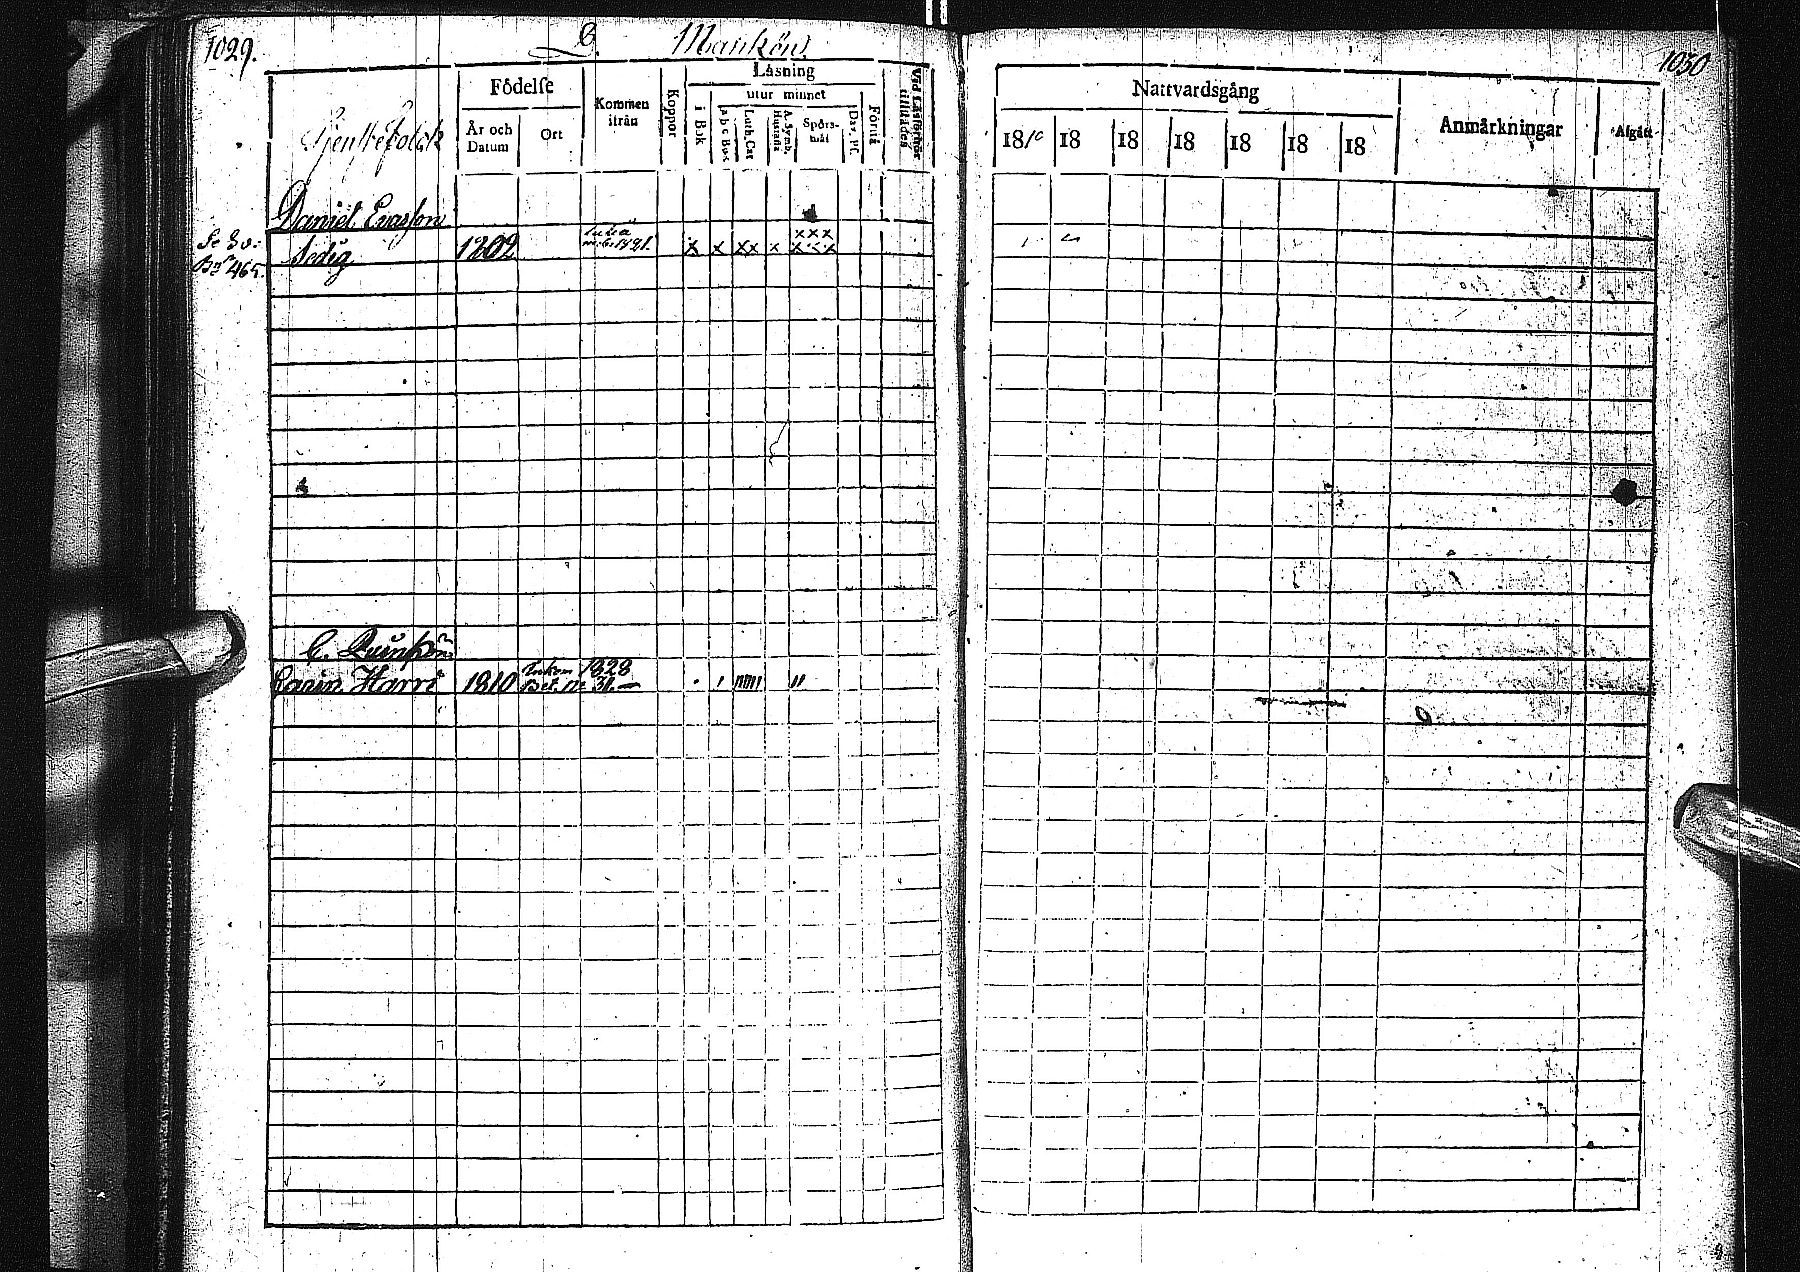 1029.
C. Mankön.
Tjenstefolck
Födelse
År och Datum
Ort
Kommen ifrån
Koppor
Låsning
utur minnet
i Bok
a b c Bok
Luth. Cat
A. Symb. Hustafla
Spörs-mål
Dav. Ps.
Förstå
Vid Läsförhör tillstådes
Daniel Ersson
Se 30:
Ledig 1802 1821. x x xx x xxx xxx
465.
C. Quinkön
Carin Harri 1810 Inkom 1828 Bet. No 31.
1030
Nattvardsgång
1810 18 18 18 18 18 18
Anmärkningar
Afgått